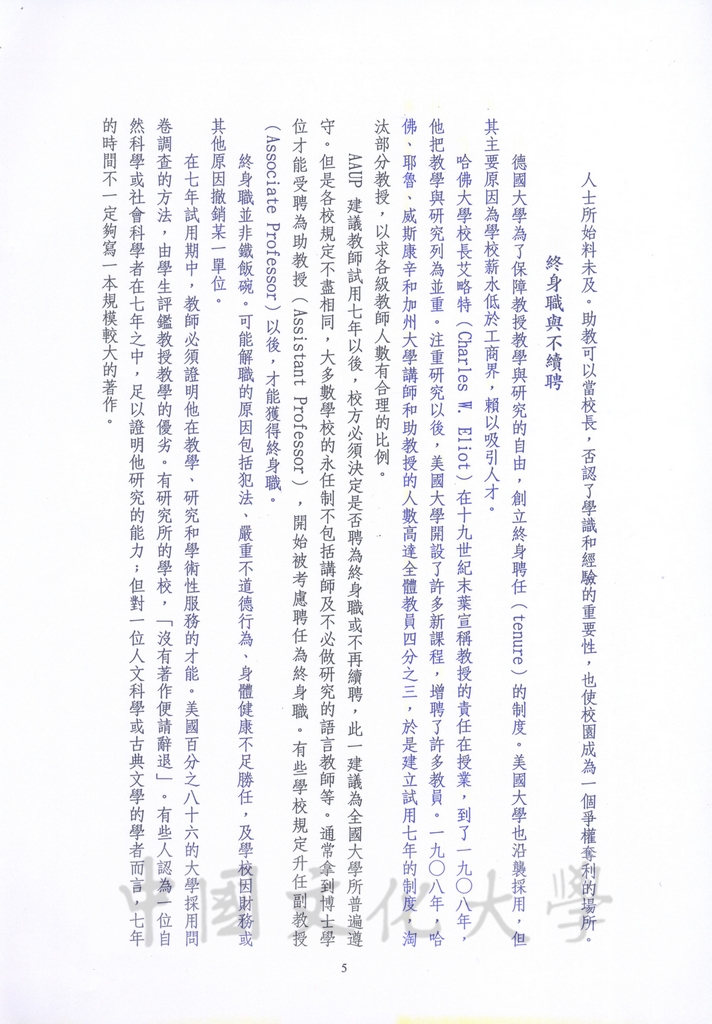 人士所始料未及。助教可以當校長，否認了學識和經驗的重要性，也使校園成為一個爭權奪利的場所。
終身職與不續聘
德國大學為了保障教授教學與研究的自由，創立終身聘任（tenure）的制度。美國大學也沿襲採用，但
其主要原因為學校薪水低於工商界，賴以吸引人才。
哈佛大學校長艾略特（Charles W. Eliot）在十九世紀末葉宣稱教授的責任在授業，到了一九〇八年，
他把教學與研究列為並重。注重研究以後，美國大學開設了許多新課程，增聘了許多教員。一九〇八年，哈
佛、耶魯、威斯康辛和加州大學講師和助教授的人數高達全體教員四分之三，於是建立試用七年的制度，淘
汰部分教授，以求各級教師人數有合理的比例。
AAUP 建議教師試用七年以後，校方必須決定是否聘為終身職或不再續聘，此一建議為全國大學所普遍遵
守。但是各校規定不盡相同，大多數學校的永任制不包括講師及不必做研究的語言教師等。通常拿到博士學
位才能受聘為助教授（Assistant Professor），開始被考慮聘任為終身職。有些學校規定升任副教授
（Associate Professor）以後，才能獲得終身職。
終身職並非鐵飯碗。可能解職的原因包括犯法、嚴重不道德行為、身體健康不足勝任，及學校因財務或
其他原因撤銷某一單位。
在七年試用期中，教師必須證明他在教學、研究和學術性服務的才能。美國百分之八十六的大學採用問
卷調查的方法，由學生評鑑教授教學的優劣。有研究所的學校，「沒有著作便請辭退」。有些人認為一位自
然科學或社會科學者在七年之中，足以證明他研究的能力；但對一位人文科學或古典文學的學者而言，七年
的時間不一定夠寫一本規模較大的著作。
中國文化大學
5